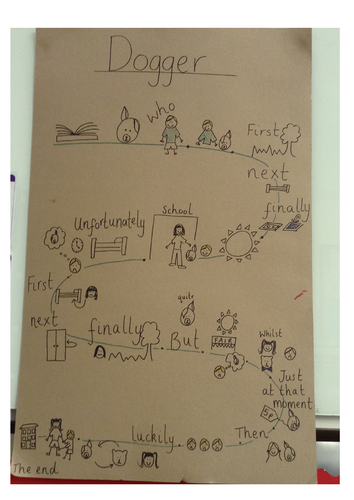 Dogger
who
First
next
finally
Unfortunately
School
First
next
finally
But
quite
FAIR
Whilst
Just
at that
moment
Then
luckily
The end